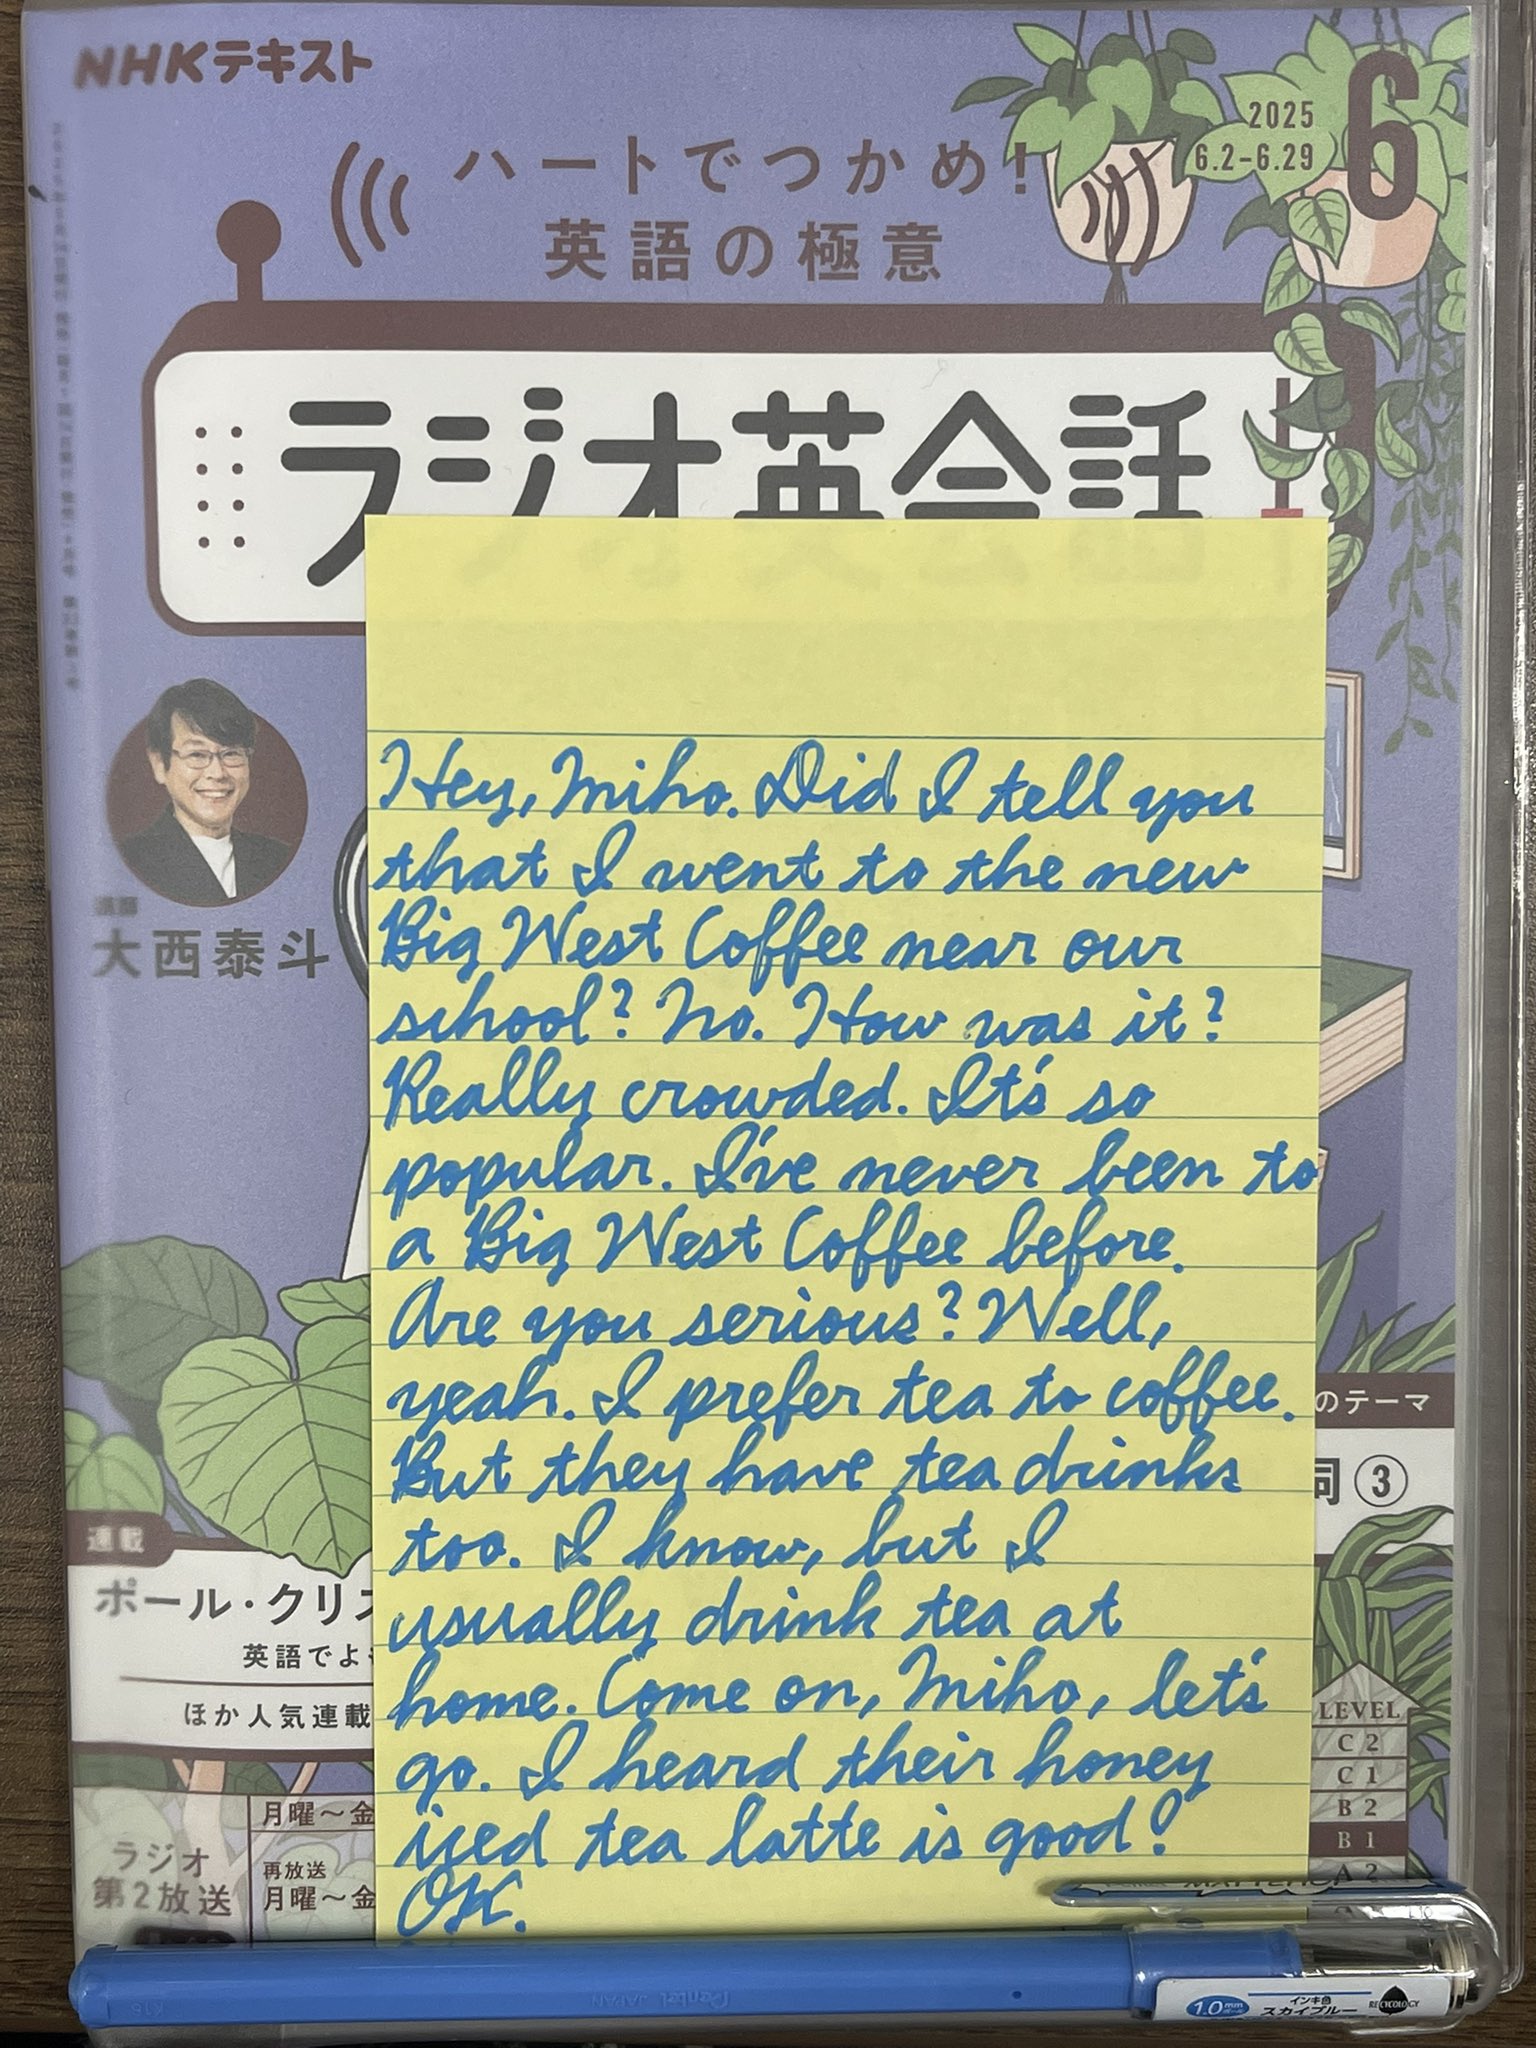 NHKテキスト
2025
6.2-6.29
6
ハートでつかめ!
英語の極意
ラジオ英会話
講師
大西泰斗
Hey, Miho. Did I tell you
that I went to the new
Big West Coffee near our
school? No. How was it?
Really crowded. It's so
popular. I've never been to
a Big West Coffee before.
Are you serious? Well,
yeah. I prefer tea to coffee.
But they have tea drinks
too. I know, but I
usually drink tea at
home. Come on, Miho, let's
go. I heard their honey
iced tea latte is good!
OK.
のテーマ
詞③
連載
ポール・クリス
英語でよ
ほか人気連載
ラジオ
第2放送
月曜~金
再放送
月曜~金
LEVEL
C2
C1
B2
B1
A2
Pentel JAPAN
K16
1.0mm
ボール
インキ色
スカイブルー
RECYCOLOGY